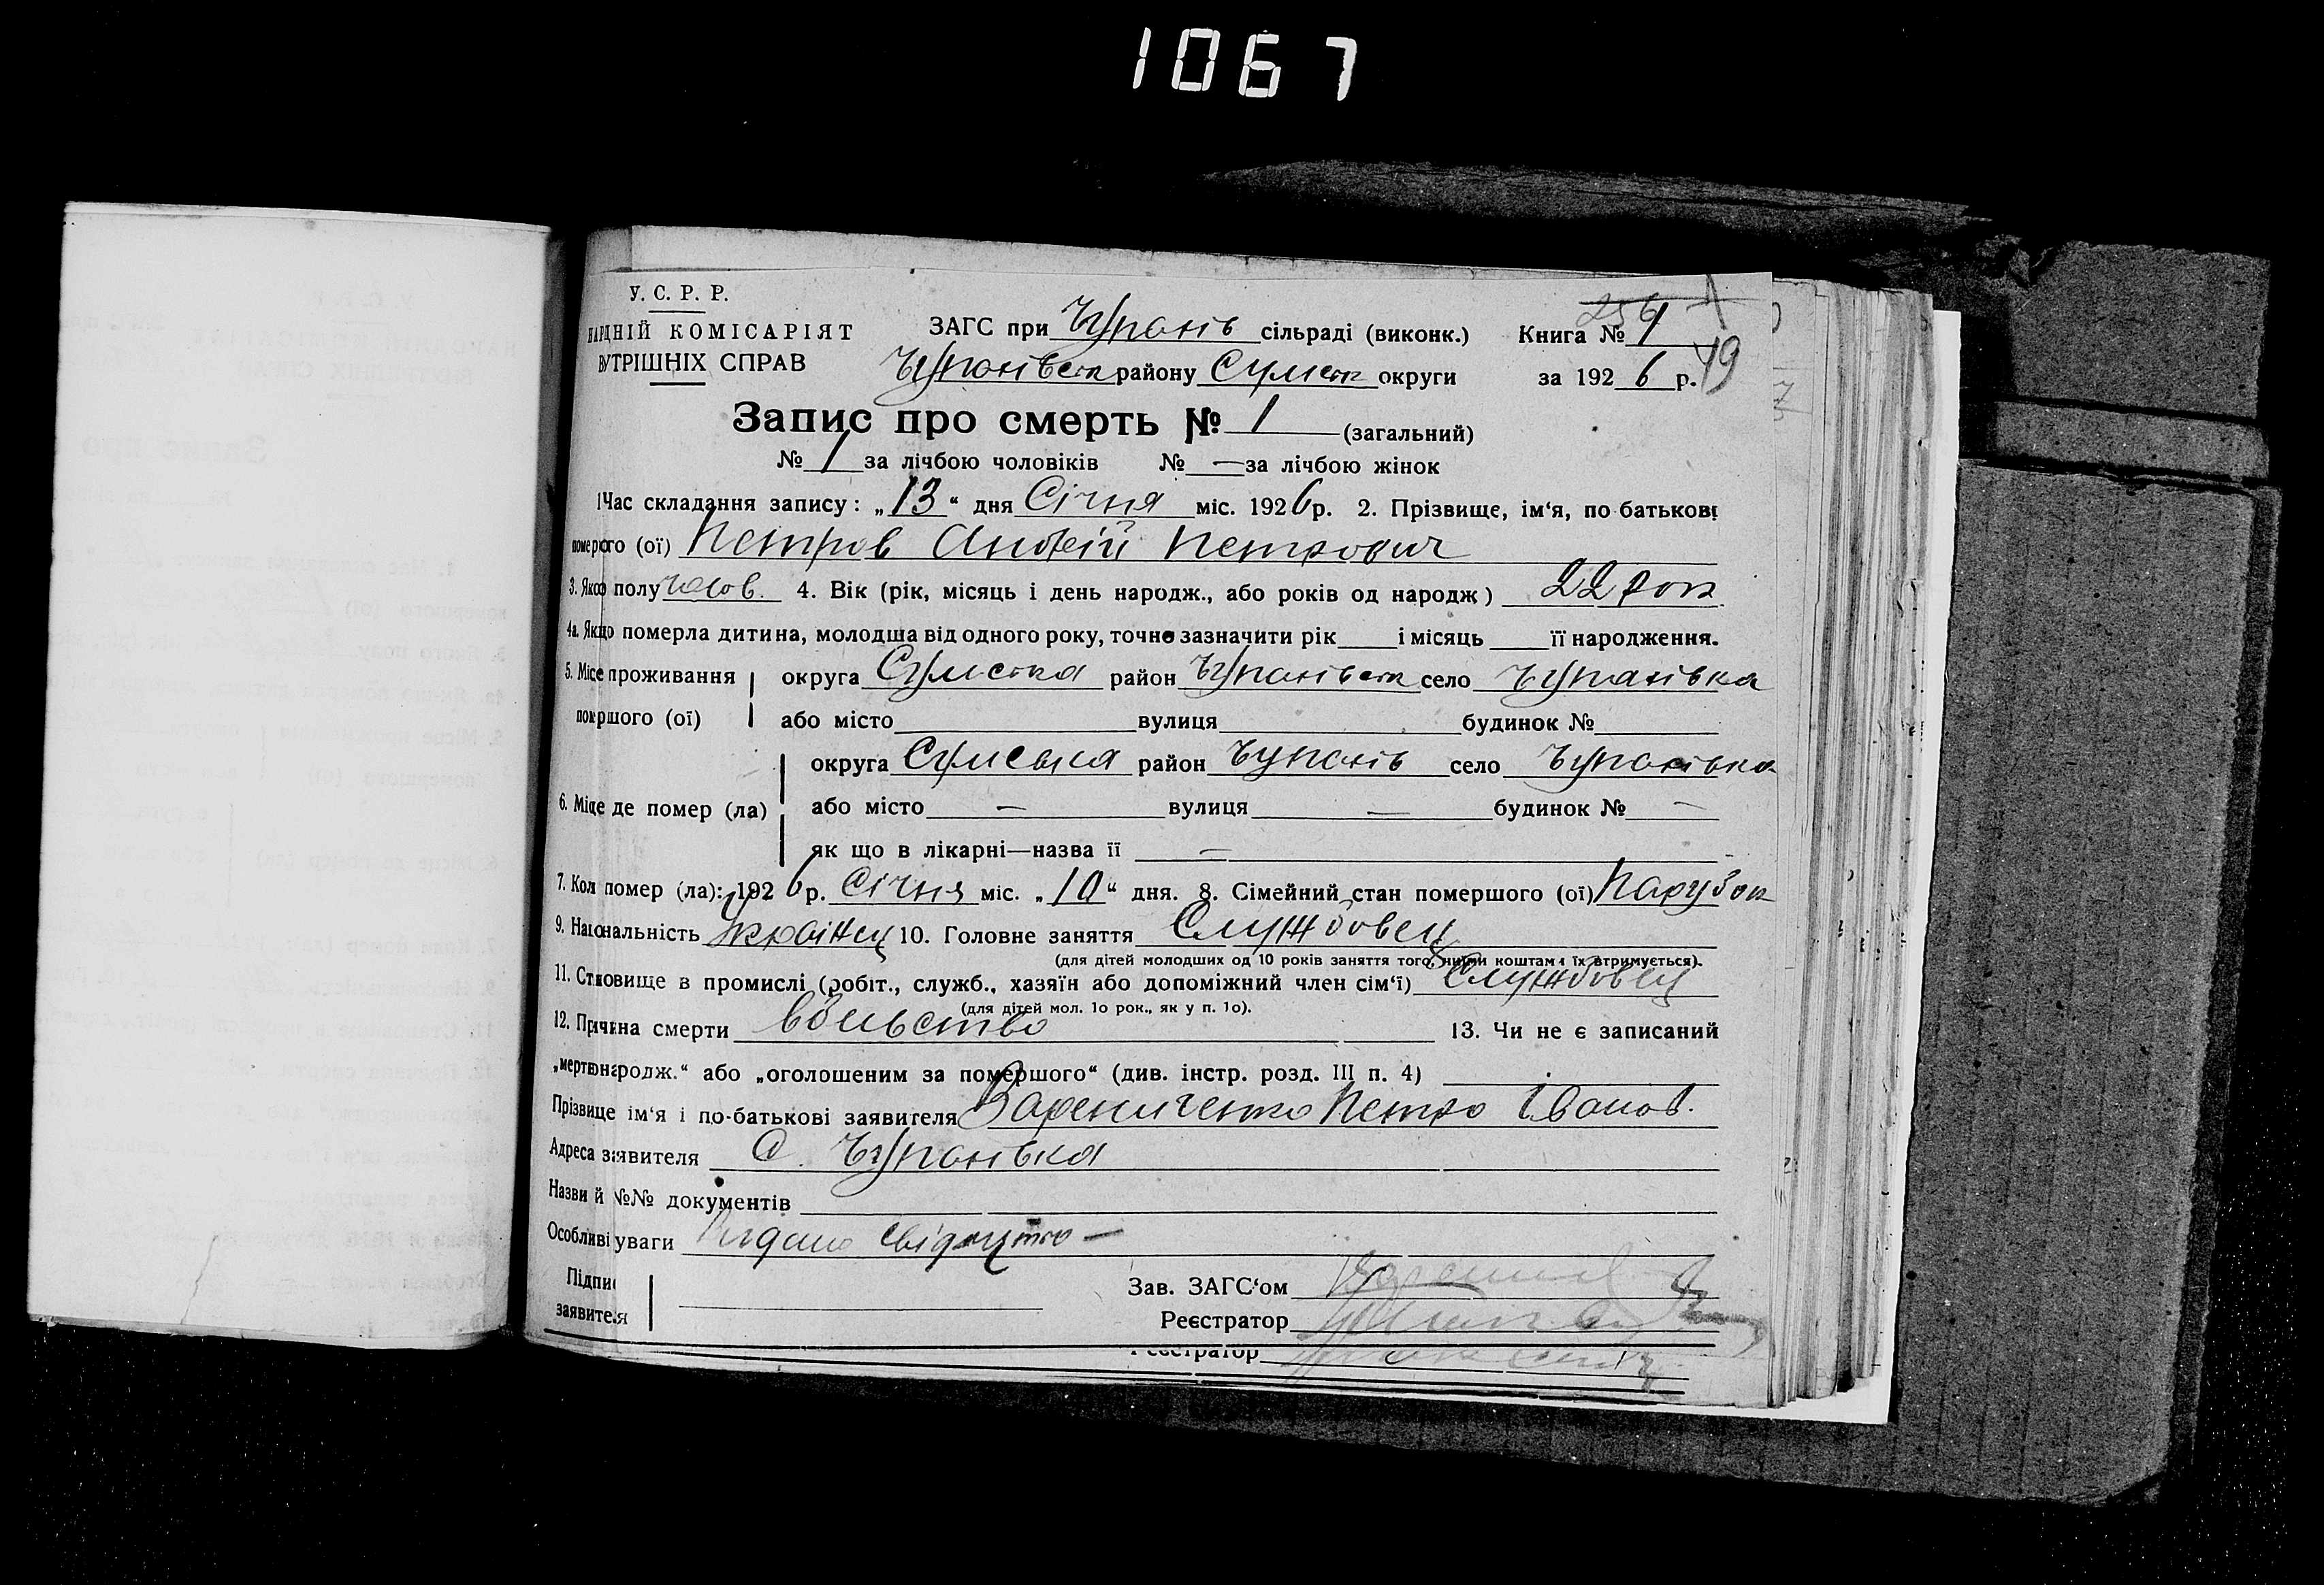 1067
У. С. Р. Р.
НАРДНІЙ КОМІСАРІЯТ
ВУТРІШНІХ СПРАВ
ЗАГС при Чупахів сільраді (виконк.)
Книга № 1
Чупахівськ району Сумськ округи
за 192 6 р.
49
Запис про смерть № 1 (загальний)
№ 1 за лічбою чоловіків № — за лічбою жінок
1 Час складання запису: „ 13 “ дня Січня міс. 192 6 р. 2. Прізвище, ім‘я, по батькові
померого (ої) Петров Андрій Петрович
3. Якого полу чолов. 4. Вік (рік, місяць і день народж., або років од народж) 22 рок
4а. Якщо померла дитина, молодша від одного року, точно зазначити рік і місяць її народження.
5. Місце проживання округа Сумська район Чупахівськ село Чупахівка
помершого (ої) або місто вулиця будинок №
округа Сумська район Чупахів село Чупахівка
6. Місце де помер (ла) або місто — вулиця — будинок № —
як що в лікарні—назва її —
7. Коли помер (ла): 192 6 р. Січня міс. „ 10 “ дня. 8. Сімейний стан помершого (ої) Парубок
9. Національність Українец 10. Головне заняття Службовец
(для дітей молодших од 10 років заняття того, чиїми коштами їх втримується).
11. Становище в промислі (робіт., служб., хазяїн або допоміжний член сім‘ї) Службовец
(для дітей мол. 1о рок., як у п. 1о).
12. Причина смерти вбивство 13. Чи не є записаний
„мертвонародж.“ або „оголошеним за помершого“ (див. інстр. розд. III п. 4)
Прізвище ім‘я і по-батькові заявителя Петро Іванов.
Адреса заявителя С. Чупахівка
Назви й №№ документів
Особливі уваги Видано свідоцтво —
Підпис
заявителя
Зав. ЗАГС‘ом
Реєстратор
Реєстратор